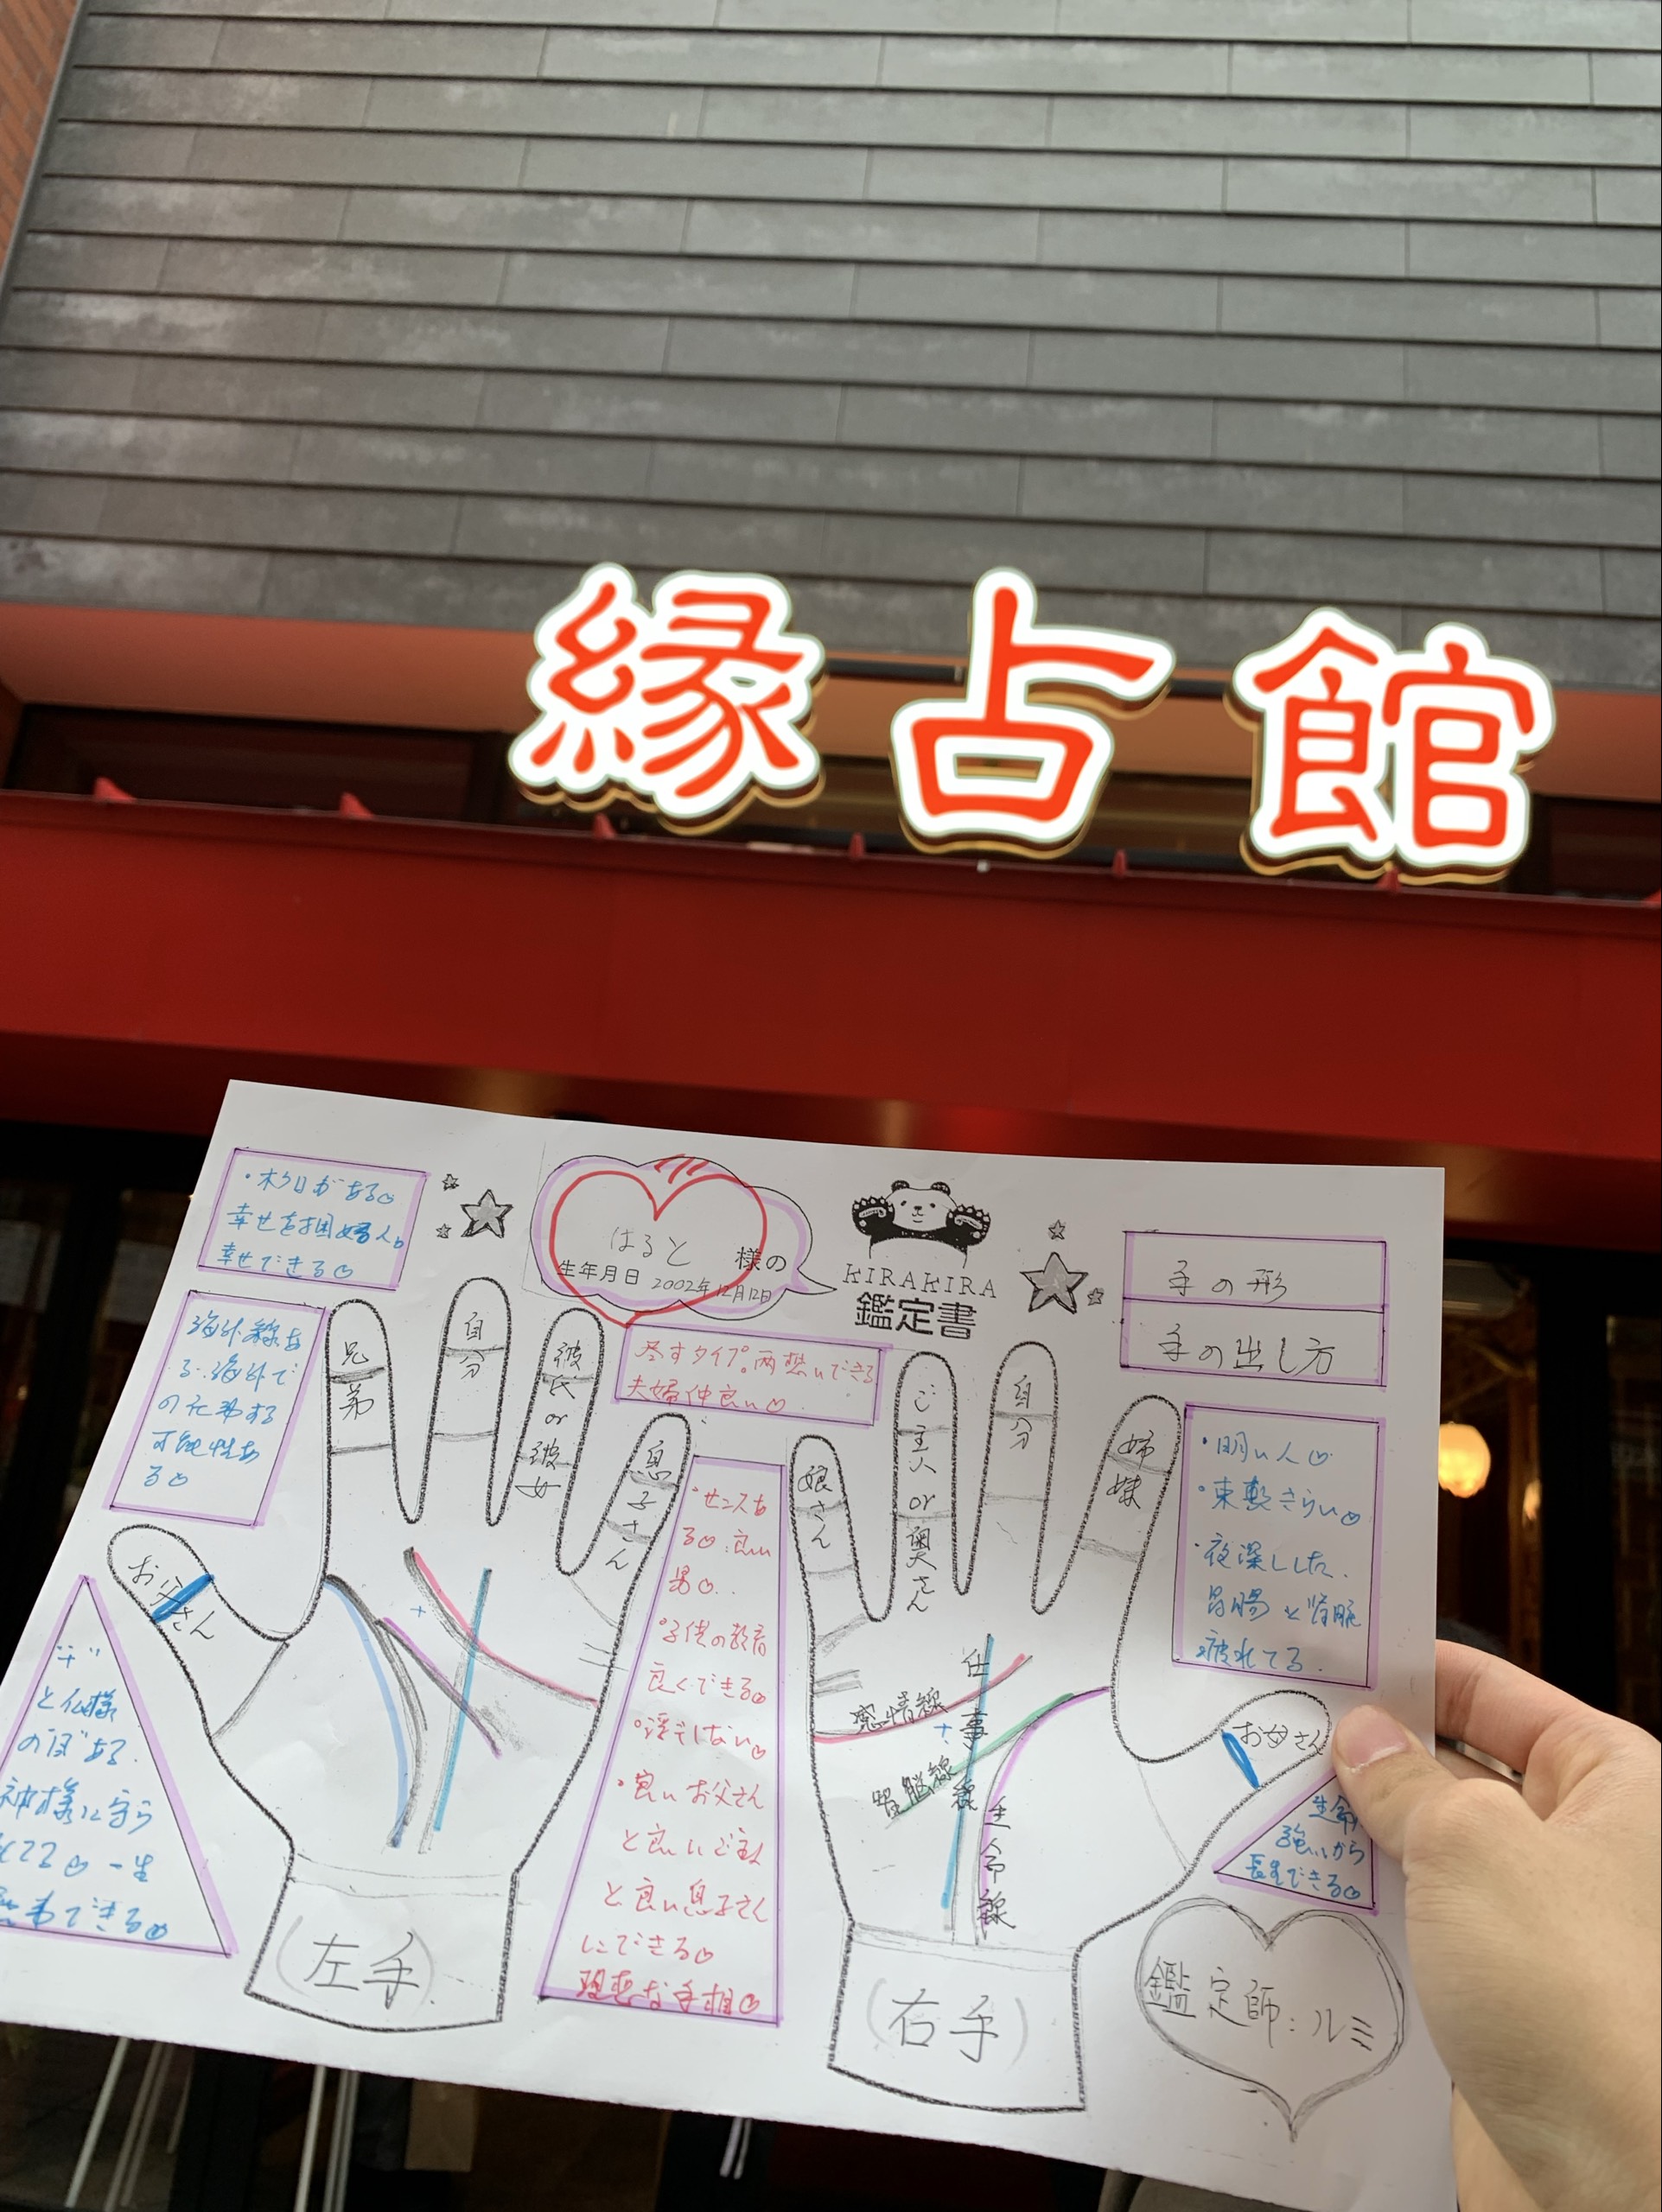 縁占館
・ホクロがある♡
幸せを掴める人。
幸せできる♡
はると 様の
生年月日 2002年12月12日
KIRAKIRA
鑑定書
手の形
手の出し方
海外線あ
る。海外で
の仕事する
可能性あ
る♡
尽すタイプ。両想いできる
夫婦仲良い♡
兄弟
自分
彼氏or彼女
息子さん
お父さん
娘さん
ご主人or奥さん
自分
姉妹
お母さん
・明るい人♡
・束縛きらい♡
・夜深しした。
胃腸と
疲れてる。
・センスあ
る♡良い
男♡
・子供の教育
良くできる♡
・浮気しない♡
・良いお父さん
と良いご主人
と良い息子さん
にできる♡
理想な手相♡
"十"
と仏様
神様に守ら
れてる♡一生
できる♡
感情線
頭脳線
仕事線
生命線
生命
強いから
長生できる♡
(左手)
(右手)
鑑定師:ルミ